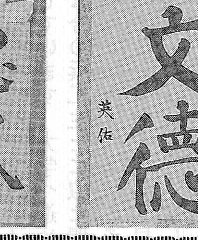 文德
英佑